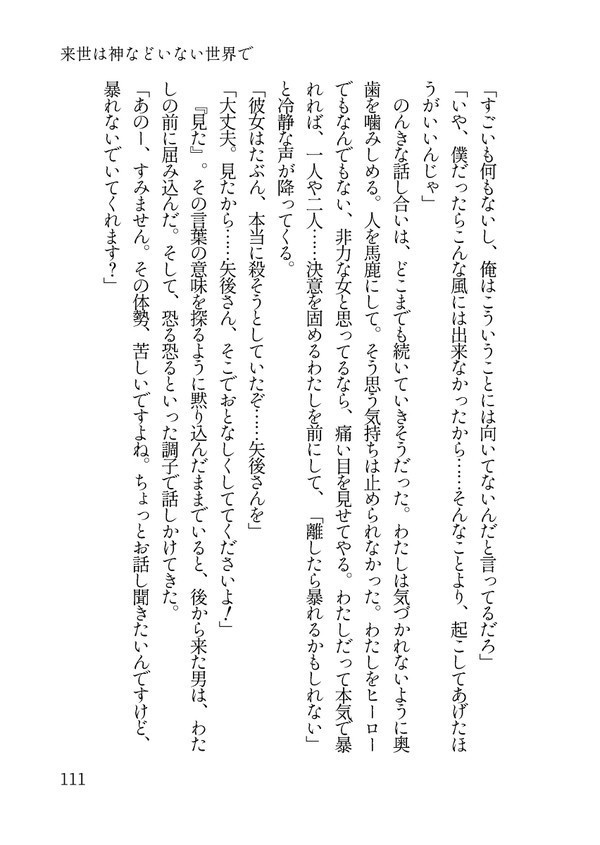 来世は神などいない世界で
「すごいも何もないし、俺はこういうことには向いてないんだと言ってるだろ」
「いや、僕だったらこんな風には出来なかったから……そんなことより、起こしてあげたほ
うがいいんじゃ」
のんきな話し合いは、どこまでも続いていきそうだった。わたしは気づかれないように奥
歯を噛みしめる。人を馬鹿にして。そう思う気持ちは止められなかった。わたしをヒーロー
でもなんでもない、非力な女と思ってるなら、痛い目を見せてやる。わたしだって本気で暴
れれば、一人や二人……決意を固めるわたしを前にして、「離したら暴れるかもしれない」
と冷静な声が降ってくる。
「彼女はたぶん、本当に殺そうとしていたぞ……矢後さんを」
「大丈夫。見たから……矢後さん、そこでおとなしくしててくださいよ！」
『見た』。その言葉の意味を探るように黙り込んだままでいると、後から来た男は、わた
しの前に屈み込んだ。そして、恐る恐るといった調子で話しかけてきた。
「あのー、すみません。その体勢、苦しいですよね。ちょっとお話し聞きたいんですけど、
暴れないでいてくれます？」
111